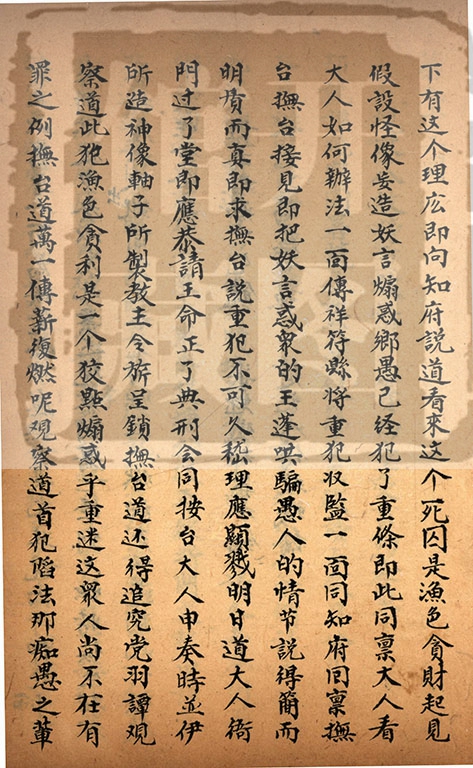 下有这个理広即向知府説道看來这个死囚是漁色貪財起見
假設怪像妄造妖言煽惑鄉愚已経犯了重條即此同禀大人看
大人如何辦法一面傳祥符縣將重犯収監一面同知府回禀撫
台撫台接見即把妖言惑衆的王蓬哄騙愚人的情节説得簡而
明質而真即求撫台説重犯不可久嵇理應顯戮明日道大人衙
門过了堂即應恭請王命正了典刑会同按台大人申奏時並伊
所造神像軸子所製教主令旂呈鎖撫台道还得追究党羽譚观
察道此犯漁色貪利是一个狡黠煽惑乎重迷这衆人尚不在有
罪之例撫台道萬一傳薪復燃呢观察道首犯陷法那痴愚之輩